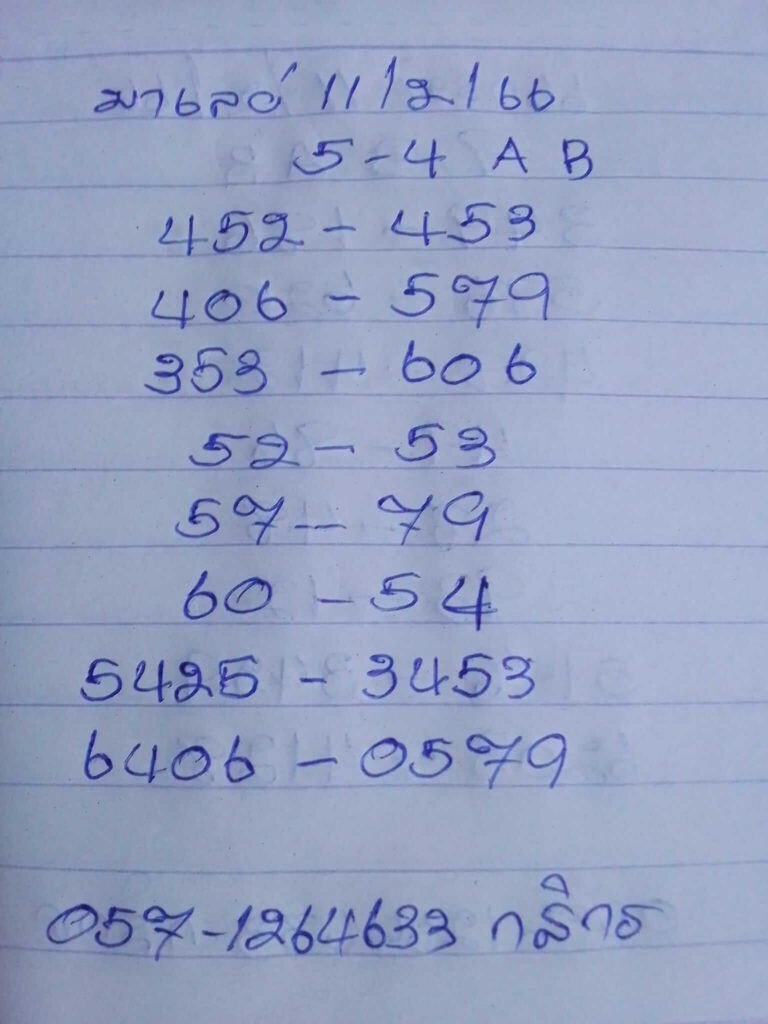 มาเลย์ 11/2/66
5-4 A B
452 - 453
406 - 579
353 - 606
52 - 53
57 - 79
60 - 54
5425 - 3453
6406 - 0579
057-1264633 กสิกร